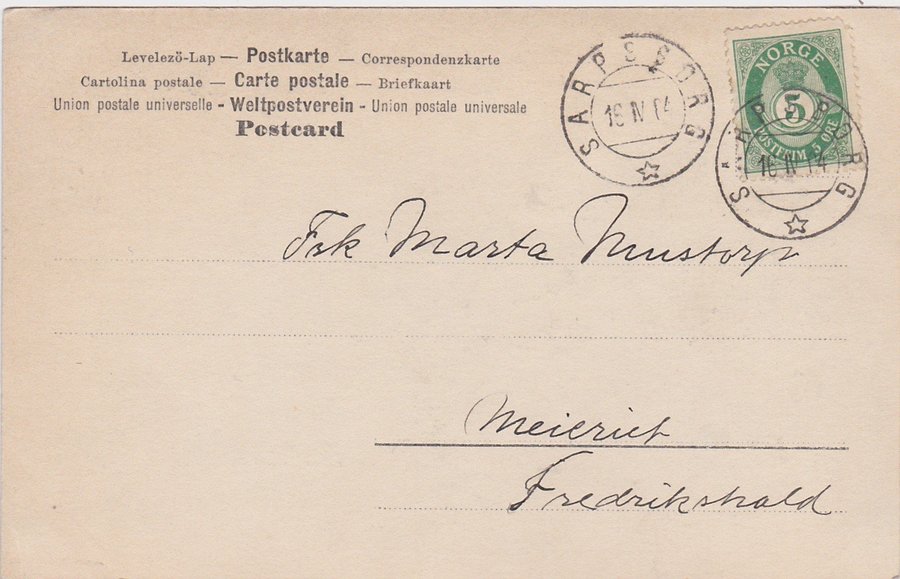 Levelezö-Lap — Postkarte — Correspondenzkarte
Cartolina postale — Carte postale — Briefkaart
Union postale universelle - Weltpostverein - Union postale universale
Postcard
SARPSBORG
16 IV 04
NORGE
5
POSTFRIM 5 ØRE
SARPSBORG
16 IV 04
Frk Marta Mustorp
Meieriet
Fredrikshald